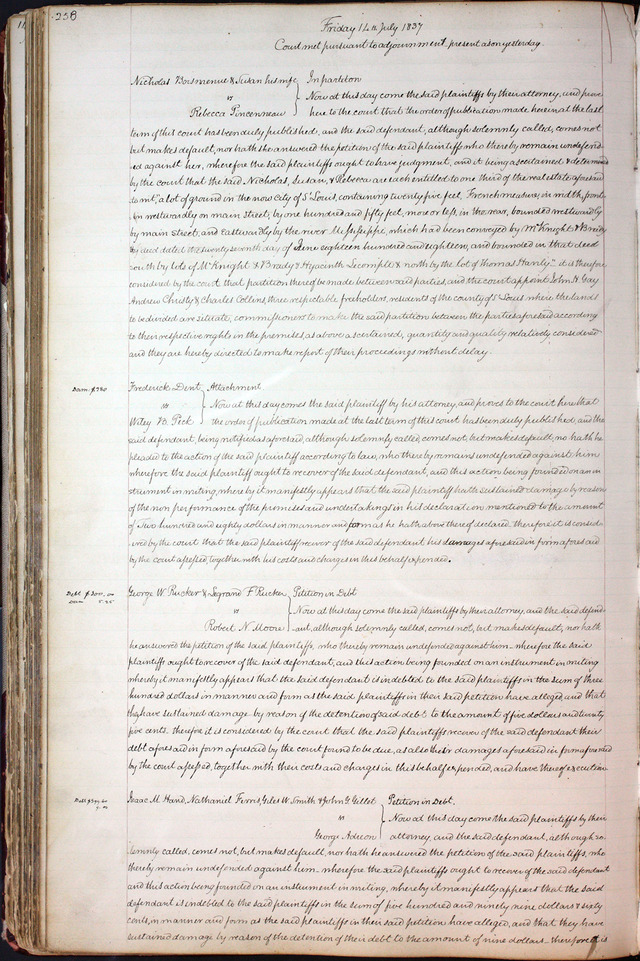 258
Friday 14th July 1837
Court met pursuant to adjournment present as on yesterday.
Nicholas & Susan his wife In partition
vs Now at this day come the said plaintiffs by their attorney, and prove
Rebecca here to the court that the order of publication made herein at the last
term of this court has been duly published, and the said defendant, although solemnly called, comes not
but makes default, nor hath she answered the petition of the said plaintiffs who thereby remain undefend-
ed against her, wherefore the said plaintiffs ought to have judgment, and it being ascertained & determined
by the court that the said Nicholas, Susan, & Rebecca are each entitled to one third of the real estate aforesaid
to wit, a lot of ground in the now city of St Louis, containing twenty five feet, French measure, in width, front-
ing westwardly on main street, by one hundred and fifty feet, more or less, in the rear, bounded westwardly
by main street, and eastwardly by the river Mississippi, which had been conveyed by McKnight & Brady
by deed dated the twenty seventh day of June eighteen hundred and eighteen, and bounded in that deed
south by lots of McKnight & Brady & Hyacinth Lecompte & north by the lot of Thomas Hanly it is therefore
considered by the court that partition thereof be made between said parties, and the court appoint John H. Gay
Andrew Christy & Charles Collins three respectable freeholders, residents of the county of St Louis where the lands
to be divided are situate, commissioners to make the said partition between the parties aforesaid according
to their respective rights in the premises, as above ascertained, quantity and quality relatively considered
and they are hereby directed to make report of their proceedings without delay.
Dam. $280 Frederick Dent Attachment
vs Now at this day comes the said plaintiff by his attorney, and proves to the court here that
Wiley B. Peck the order of publication made at the last term of this court has been duly published, and the
said defendant, being notified as aforesaid, although solemnly called, comes not, but makes default, no hath he
pleaded to the action of the said plaintiff according to law, who thereby remains undefended against him
wherefore the said plaintiff ought to recover of the said defendant, and this action being founded on an in
strument in writing, whereby it manifestly appears that the said plaintiff hath sustained damage by reason
of the non performance of the promises and undertakings in his declaration mentioned to the amount
of Two hundred and eighty dollars in manner and form as he hath above thereof declared. therefore it is consid-
ered by the court that the said plaintiff recover of the said defendant his damages aforesaid in form aforesaid
by the court assessed, together with his costs and charges in this behalf expended.
Debt $300.00 George W Rucker & Legrand F Rucker Petition in Debt
Dam 5.25 vs Now at this day come the said plaintiffs by their attorney, and the said defend-
Robert N. Moore ant, although solemnly called, comes not, but makes default, nor hath
he answered the petition of the said plaintiffs, who thereby remain undefended against him - wherefore the said
plaintiffs ought to recover of the said defendant, and this action being founded on an instrument in writing
whereby it manifestly appears that the said defendant is indebted to the said plaintiffs in the sum of three
hundred dollars in manner and form as the said plaintiffs in their said petition have alleged, and that
they have sustained damage by reason of the detention of said debt to the amount of five dollars and twenty
five cents. therefore it is considered by the court that the said plaintiffs recover of the said defendant their
debt aforesaid in form aforesaid by the court found to be due, as also their damages aforesaid in form aforesaid
by the court assessed, together with their costs and charges in this behalf expended, and have thereof execution
Isaac M. Hand, Nathaniel Ferris, Giles W. Smith & John G. Gillet Petition in Debt.
vs Now at this day come the said plaintiffs by their
George attorney, and the said defendant, although so-
lemnly called, comes not, but makes default, nor hath he answered the petition of the said plaintiffs, who
thereby remain undefended against him - wherefore the said plaintiffs ought to recover of the said defendant
and this action being founded on an instrument in writing, whereby it manifestly appears that the said
defendant is indebted to the said plaintiffs in the sum of five hundred and ninety nine dollars & sixty
cents, in manner and form as the said plaintiffs in their said petition have alleged, and that they have
sustained damage by reason of the detention of their debt to the amount of nine dollars - therefore it is